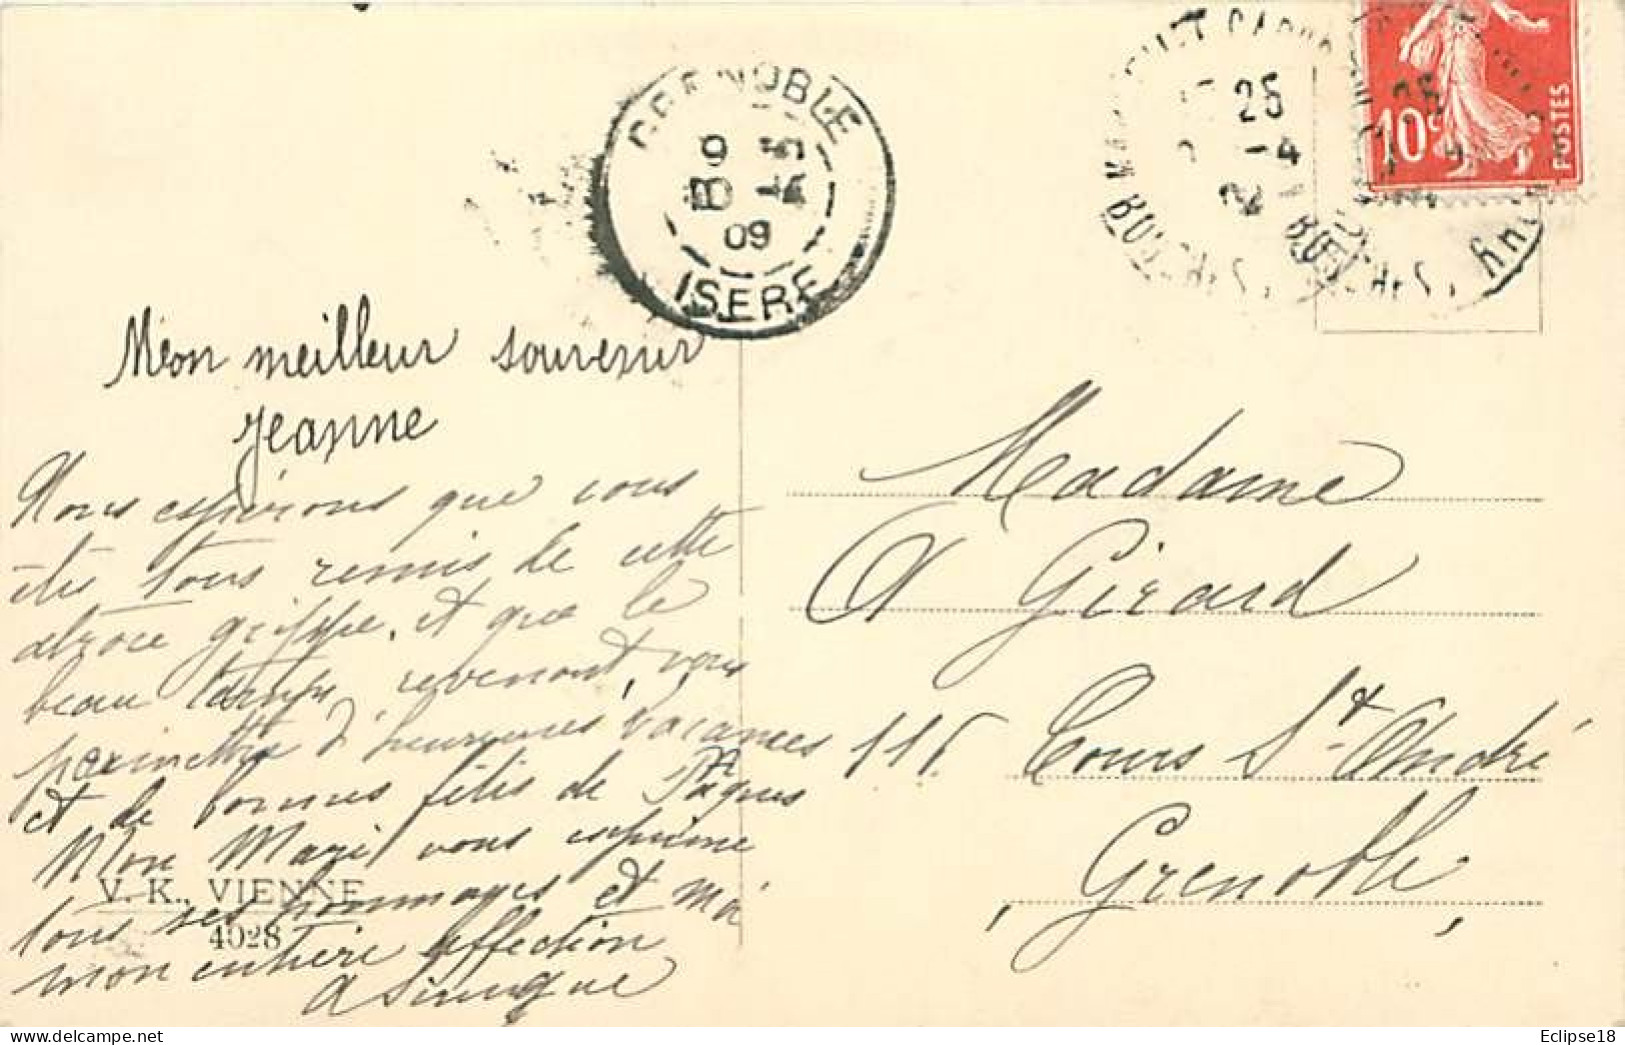 GRENOBLE
9
09
ISERE
25
-4
10c
POSTES
Mon meilleur souvenir
Jeanne
Nous espérons que vous
êtes tous remis de cette
atroce grippe, et que le
beau temps, revenant, vous
permettra d'heureuses vacances
et de bonnes fêtes de Pâques
Mon Mari vous exprime
tous ses hommages et moi
mon entière affection
V. K., VIENNE
4028
Madame
A Girard
115 Cours St André
Grenoble
Eclipse18